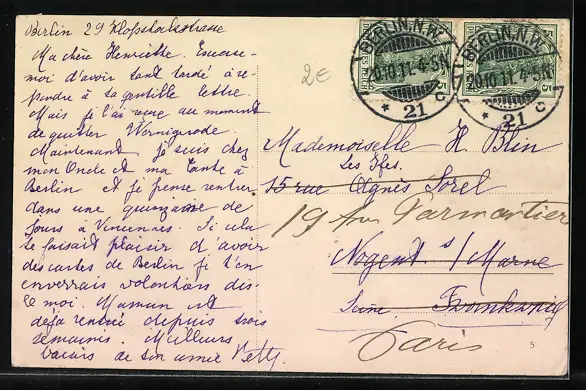 Berlin 29 Klopstockstrasse
Ma chère Henriette. Excuse-
moi d'avoir tant tardé à ré-
pondre à ta gentille lettre.
Mais je l'ai reçue au moment
de quitter Wernigerode.
Maintenant je suis chez
mon Oncle et ma Tante à
Berlin et je pense rentrer
dans une quinzaine de
jours à Vincennes. Si cela
te faisait plaisir d'avoir
des cartes de Berlin je t'en
enverrais volontiers dis-
le moi. Maman est
déjà rentrée depuis trois
semaines. Meilleurs
baisers de ton amie Betty.
2€
BERLIN, N.W.
20.10.11. 4-5N
* 21 c
BERLIN, N.W.
20.10.11. 4-5N
* 21 c
5
5
Mademoiselle H. Blin
Les Ifs.
15 rue Agnès Sorel
19 Parmentier
Nogent s/ Marne
Seine Frankreich
Paris
5